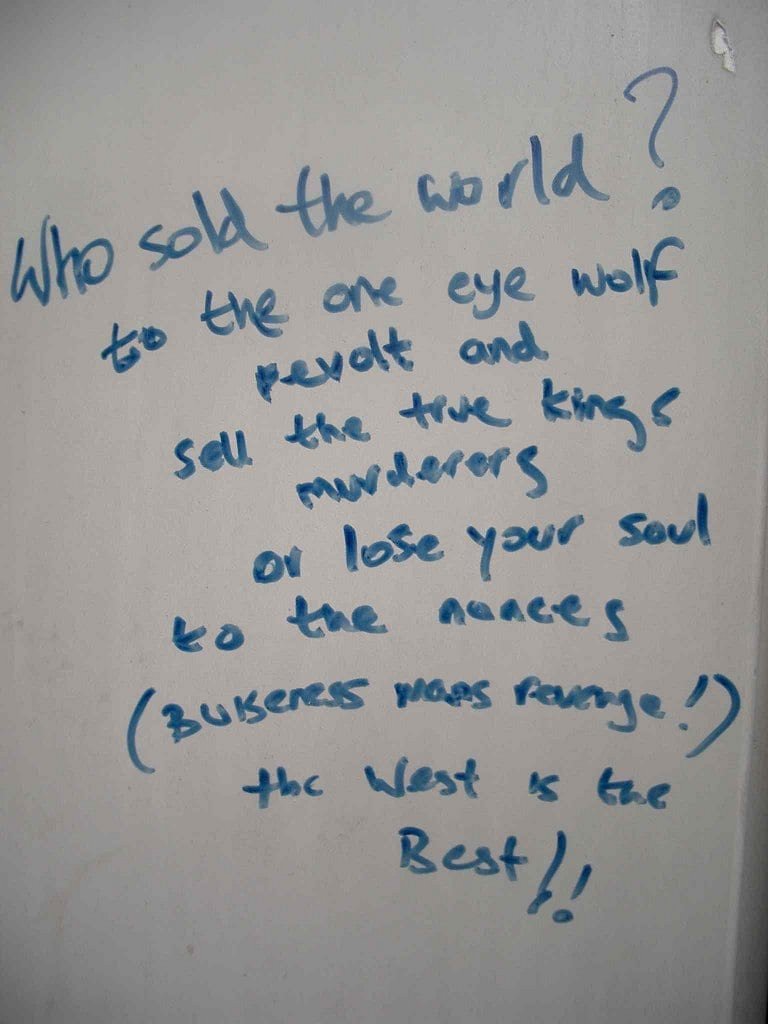 Who sold the world?
to the one eye wolf
revolt and
sell the true kings
murderers
or lose your soul
to the nonces
(Buiseness mans revenge!)
the West is the
Best!!